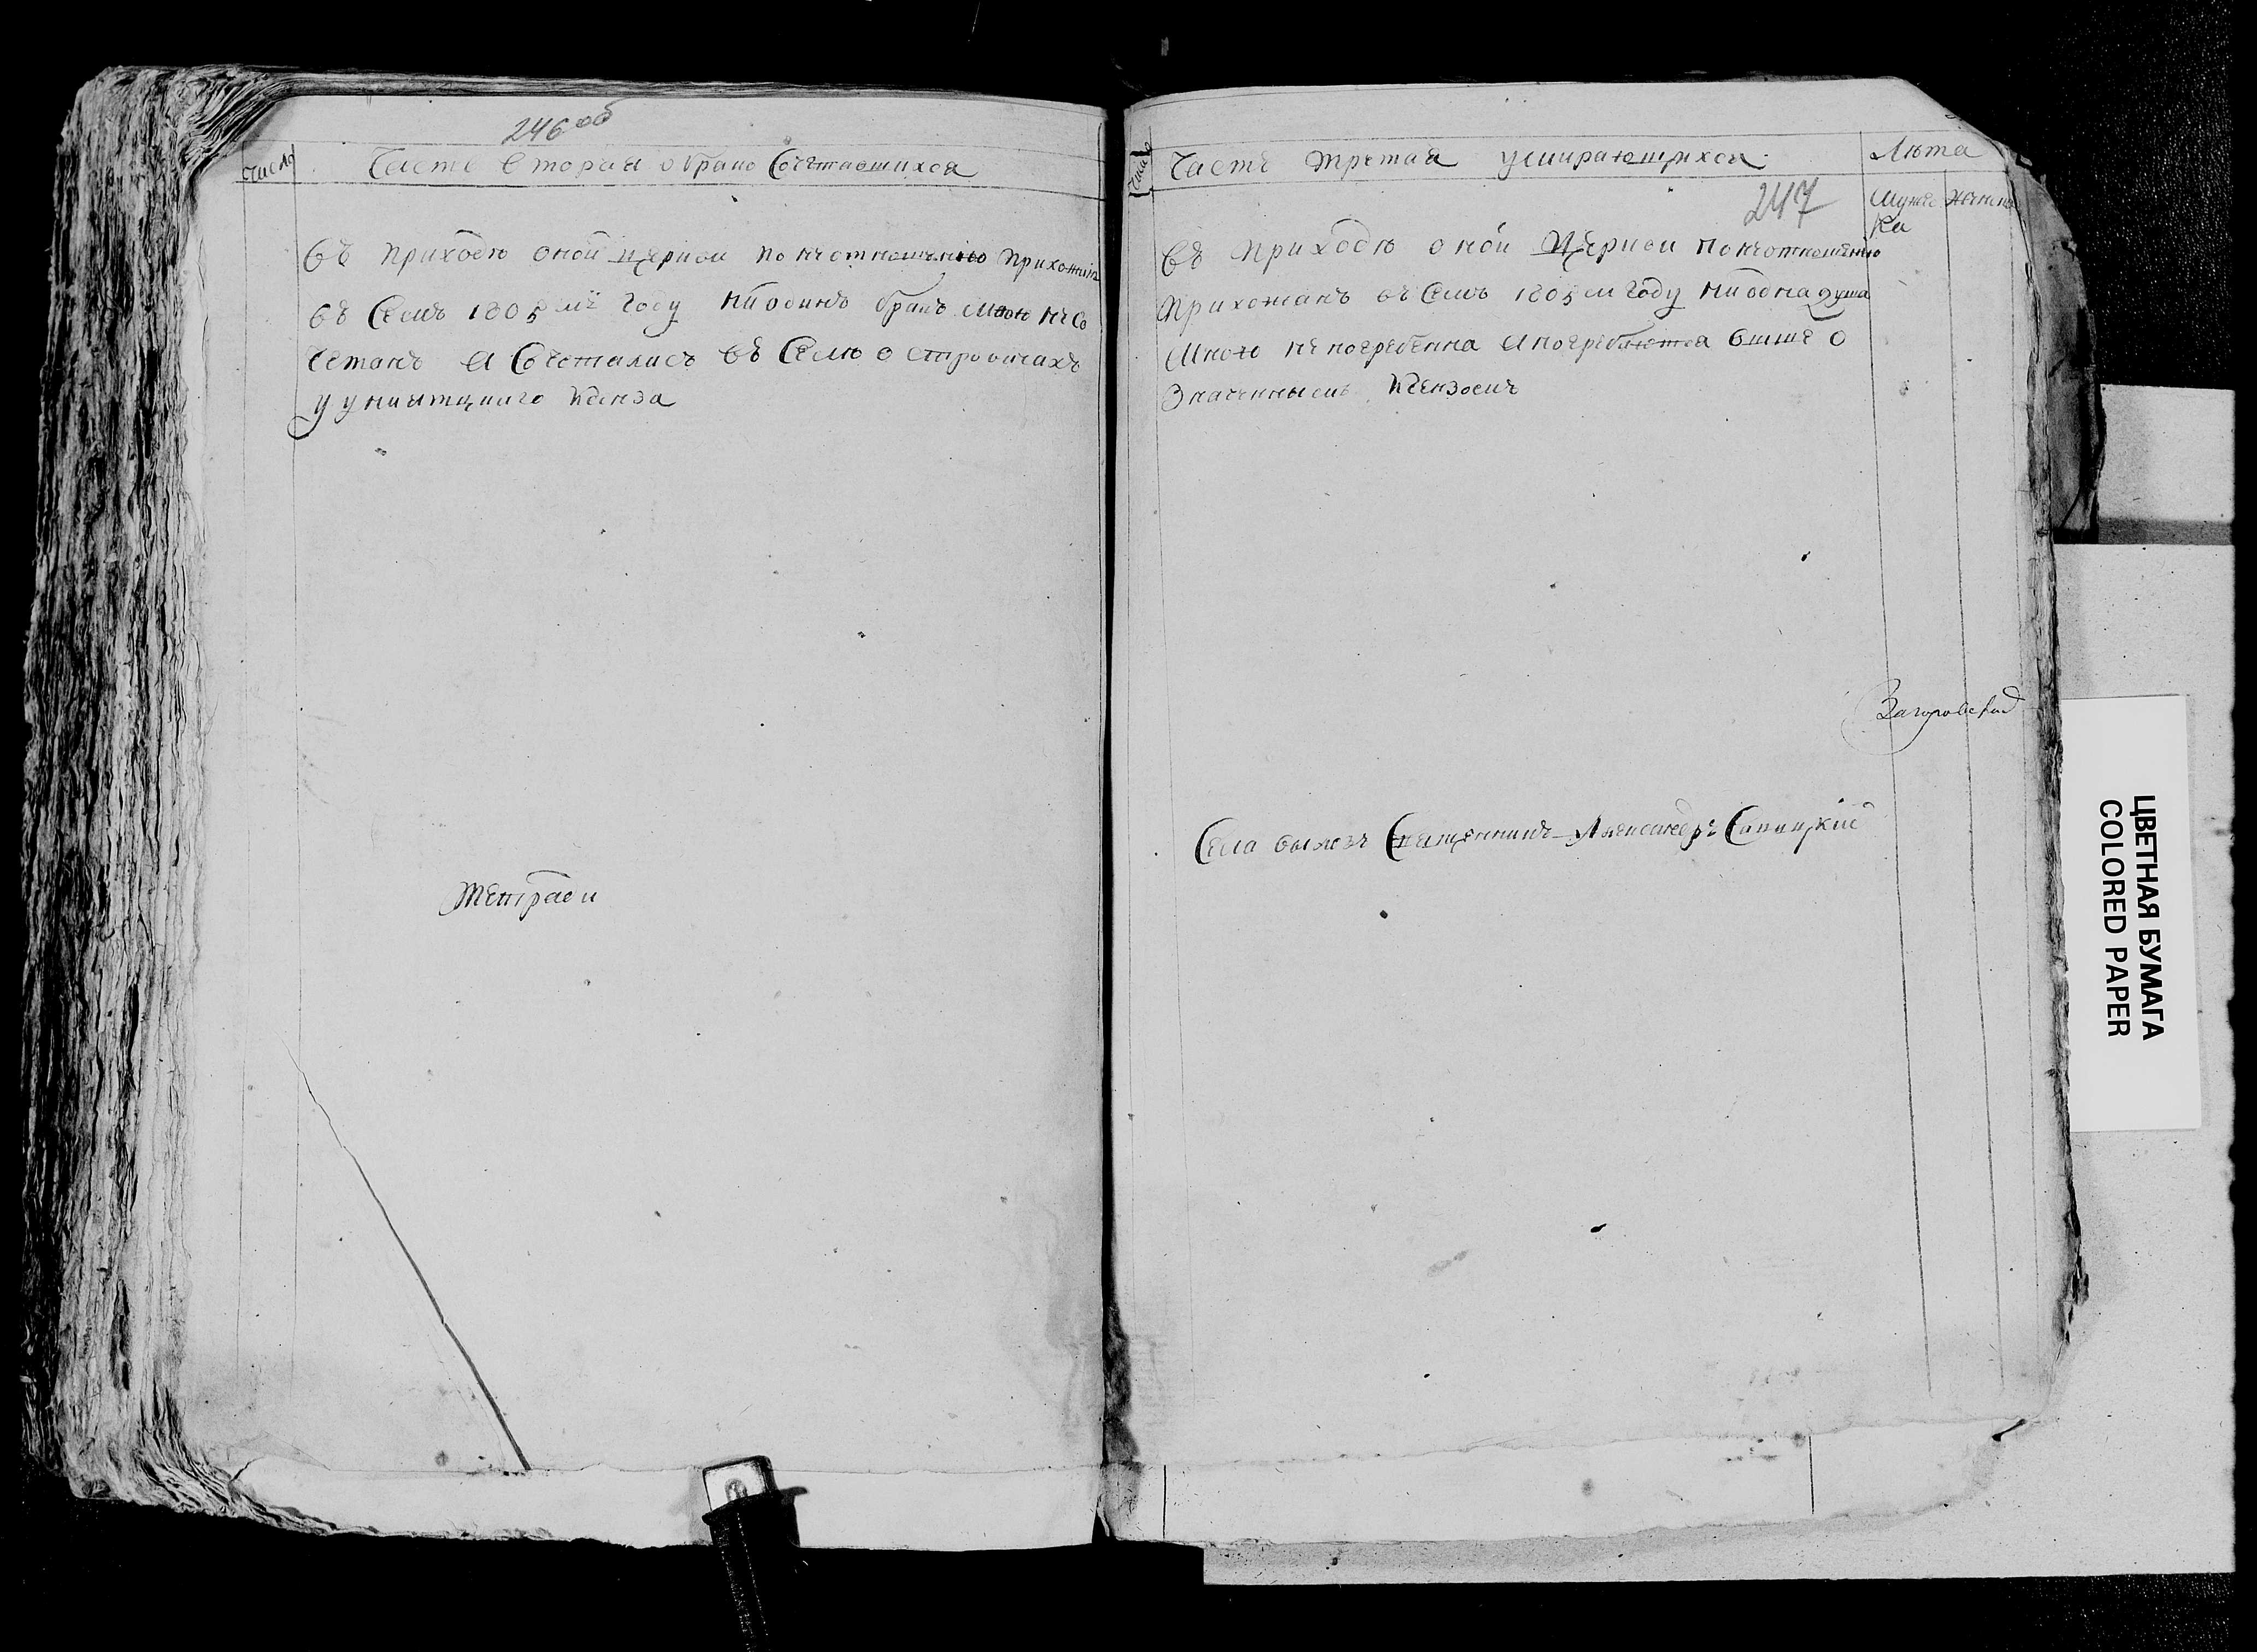 246 об
Число
Часть вторая о брако Сочетавшихся
въ приходѣ оной церкви по неотношению прихожанъ
въ Семъ 1805 мъ году ниодинъ бракъ мною несо
четанъ а Сочетались въ Селѣ Островичахъ
у унитцкого Кдзенза
Тетради
Число
Часть третая умирающихся
Лѣта
247
Мужеска
Женска
въ приходѣ оной Церкви понеотношению
прихожанъ въ Семъ 1805 м году ниодна душа
Мною непогребенна а погребаются више о
значеннымъ Кдзензомъ
Загоровский
Села Священникъ Александръ Савицкий
ЦВЕТНАЯ БУМАГА
COLORED PAPER